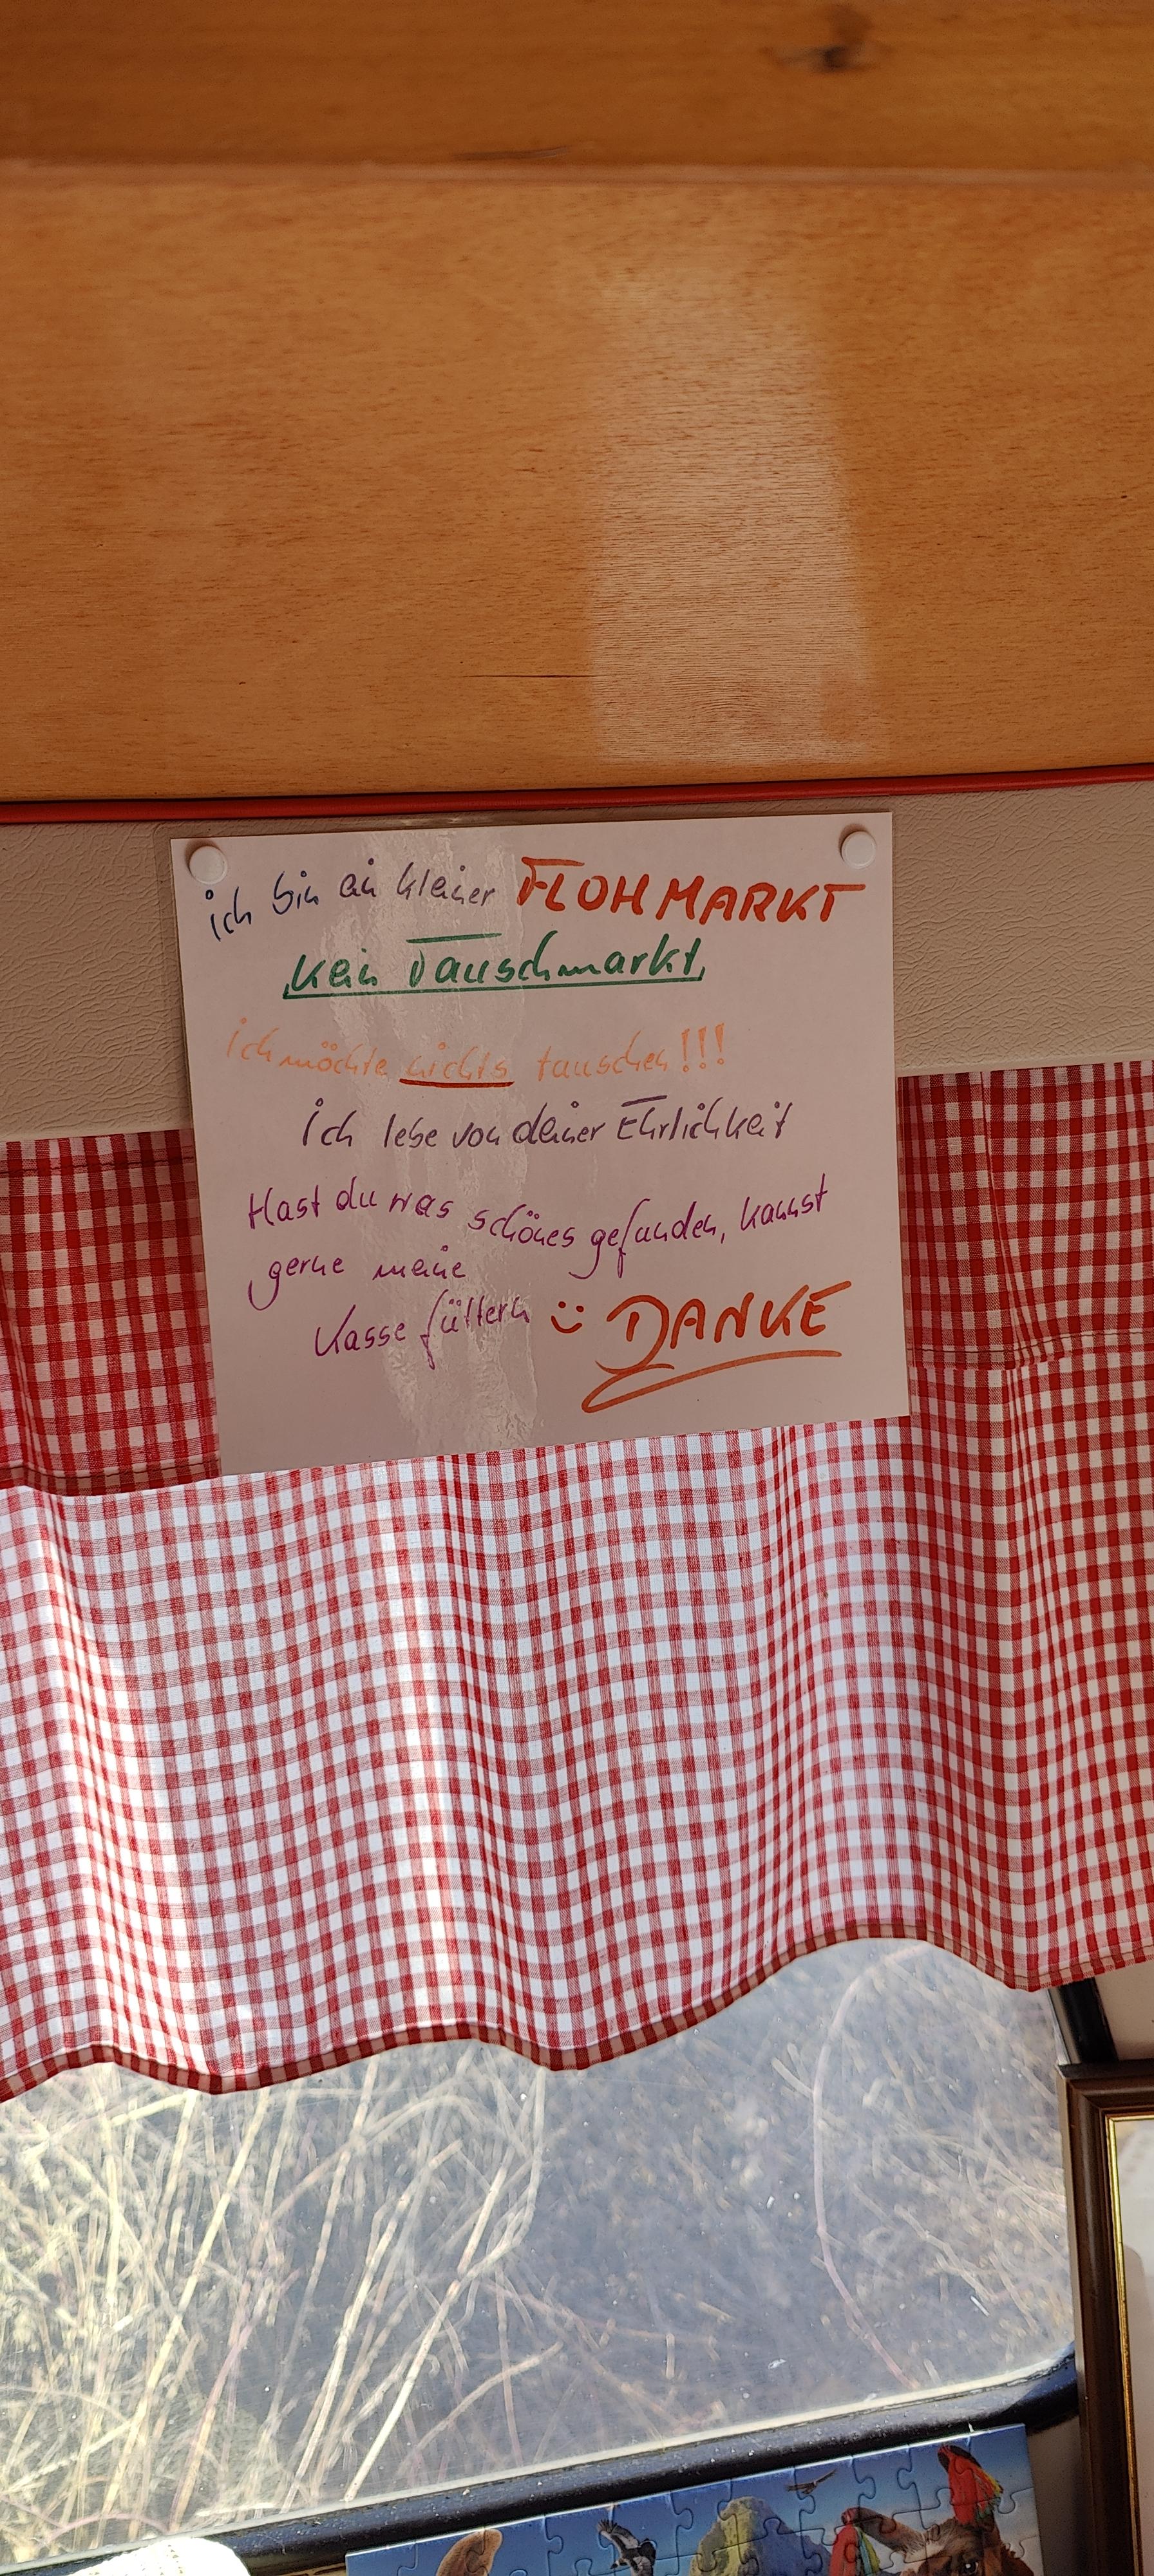 ich bin ein kleiner FLOHMARKT
kein Tauschmarkt,
ich möchte nichts tauschen!!!
Ich lebe von deiner Ehrlichkeit
Hast du was schönes gefunden, kannst
gerne meine
Kasse füttern :) DANKE